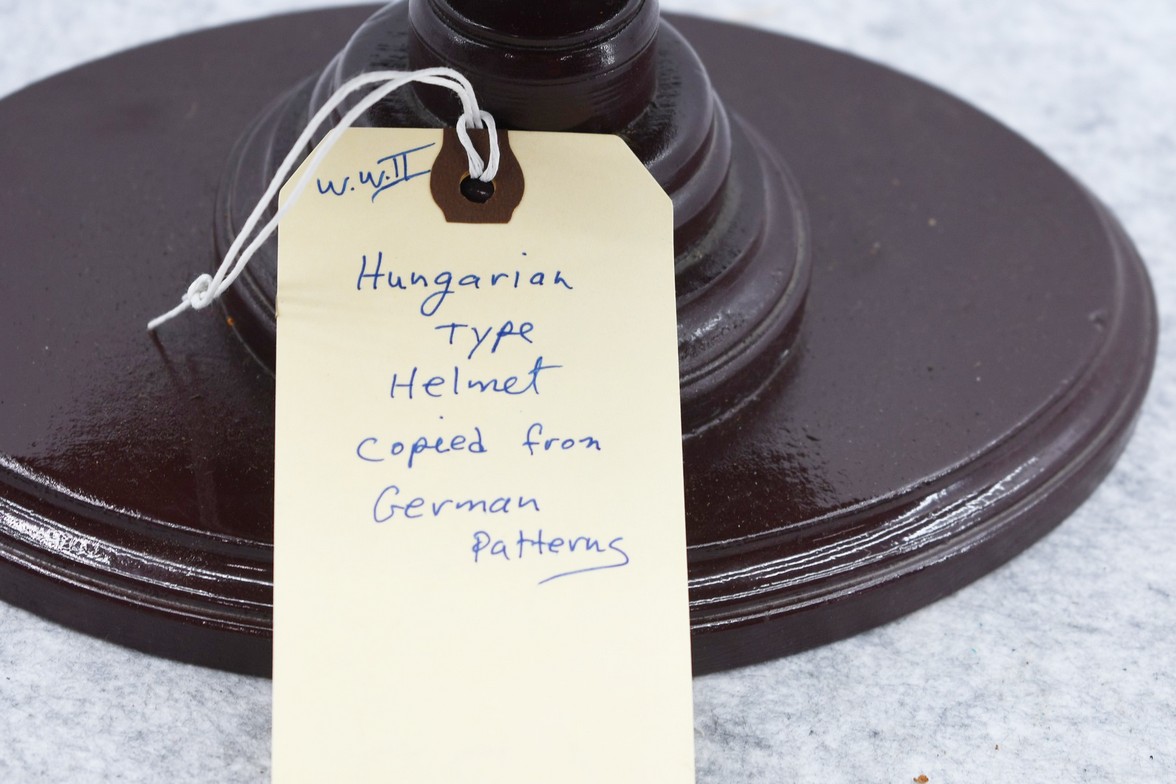 W.W.II
Hungarian
Type
Helmet
Copied from
German
Patterns